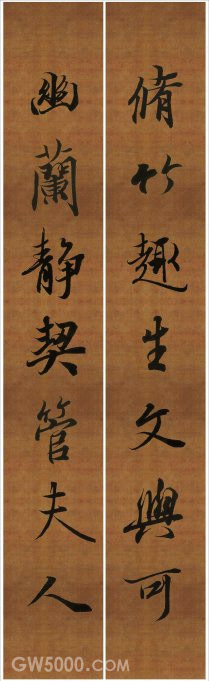 脩竹趣生文與可
幽蘭静契管夫人
GW5000.com